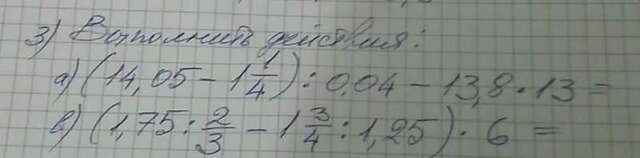 3) Выполнить действия:
а) (14,05 - 1 1/4) : 0,04 - 13,8 · 13 =
в) (1,75 : 2/3 - 1 3/4 : 1,25) · 6 =